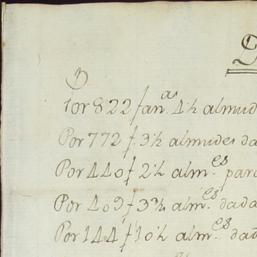 Por 822 fan.as 4½ almud
Por 772 f. 3½ almudes da
Por 440 f 2½ alm.es para
Por 409 f 3½ alm.es dada
Por 144 f 10½ alm.es dad